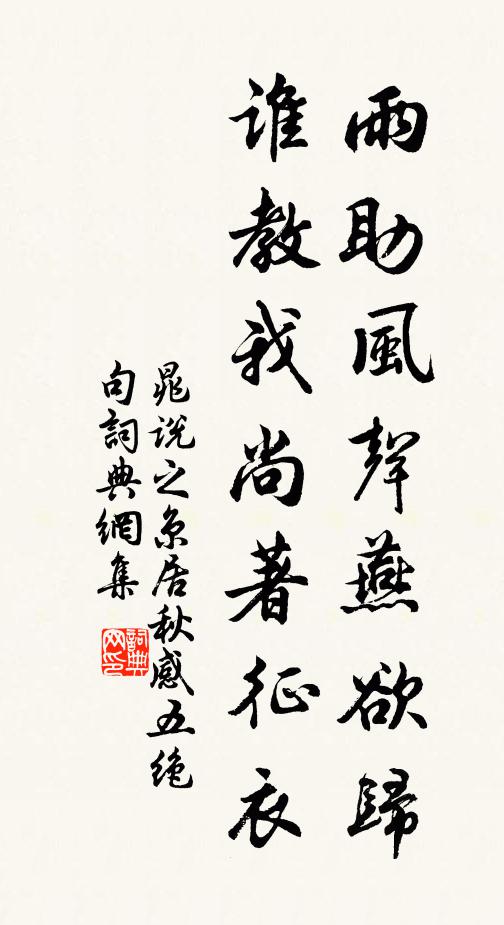 雨助風聲燕欲歸
誰教我尚著征衣
晁說之京居秋感五絕
句詞典網集
詞典网印